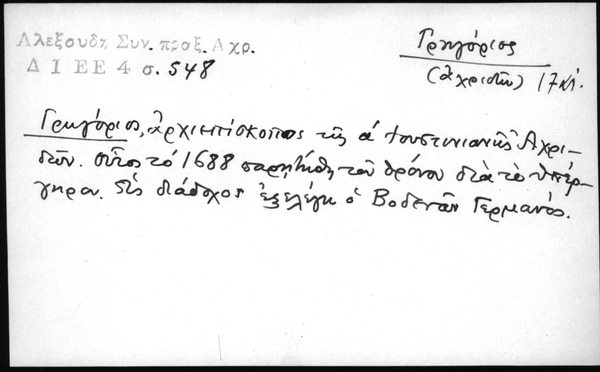 Αλεξουδη Συν. πραξ. Αχρ.
Δ Ι Ε Ε 4 σ. 548
Γρηγόριος
(Ἀχριδῶν) 17 αἰ.
Γρηγόριος, ἀρχιεπίσκοπος τῆς α΄ Ἰουστινιανῆς Ἀχρι-
δῶν. οὗτος τό 1688 παρῃτήθη τοῦ θρόνου διὰ τὸ ὑπέρ-
γηρον. διάδοχος ἐξελέγη ὁ Βοδενῶν Γερμανός.